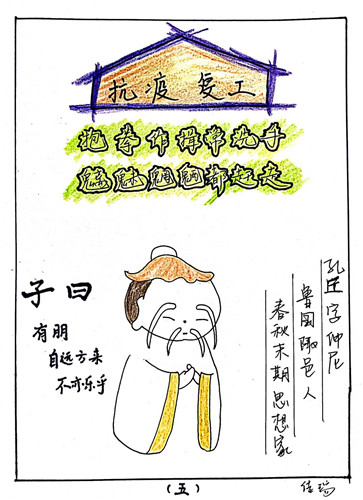 抗疫 复工
抱拳作揖常洗手
魑魅魍魉都赶走
子曰
有朋
自远方来
不亦乐乎
孔丘字仲尼
鲁国陬邑人
春秋末期思想家
(五)